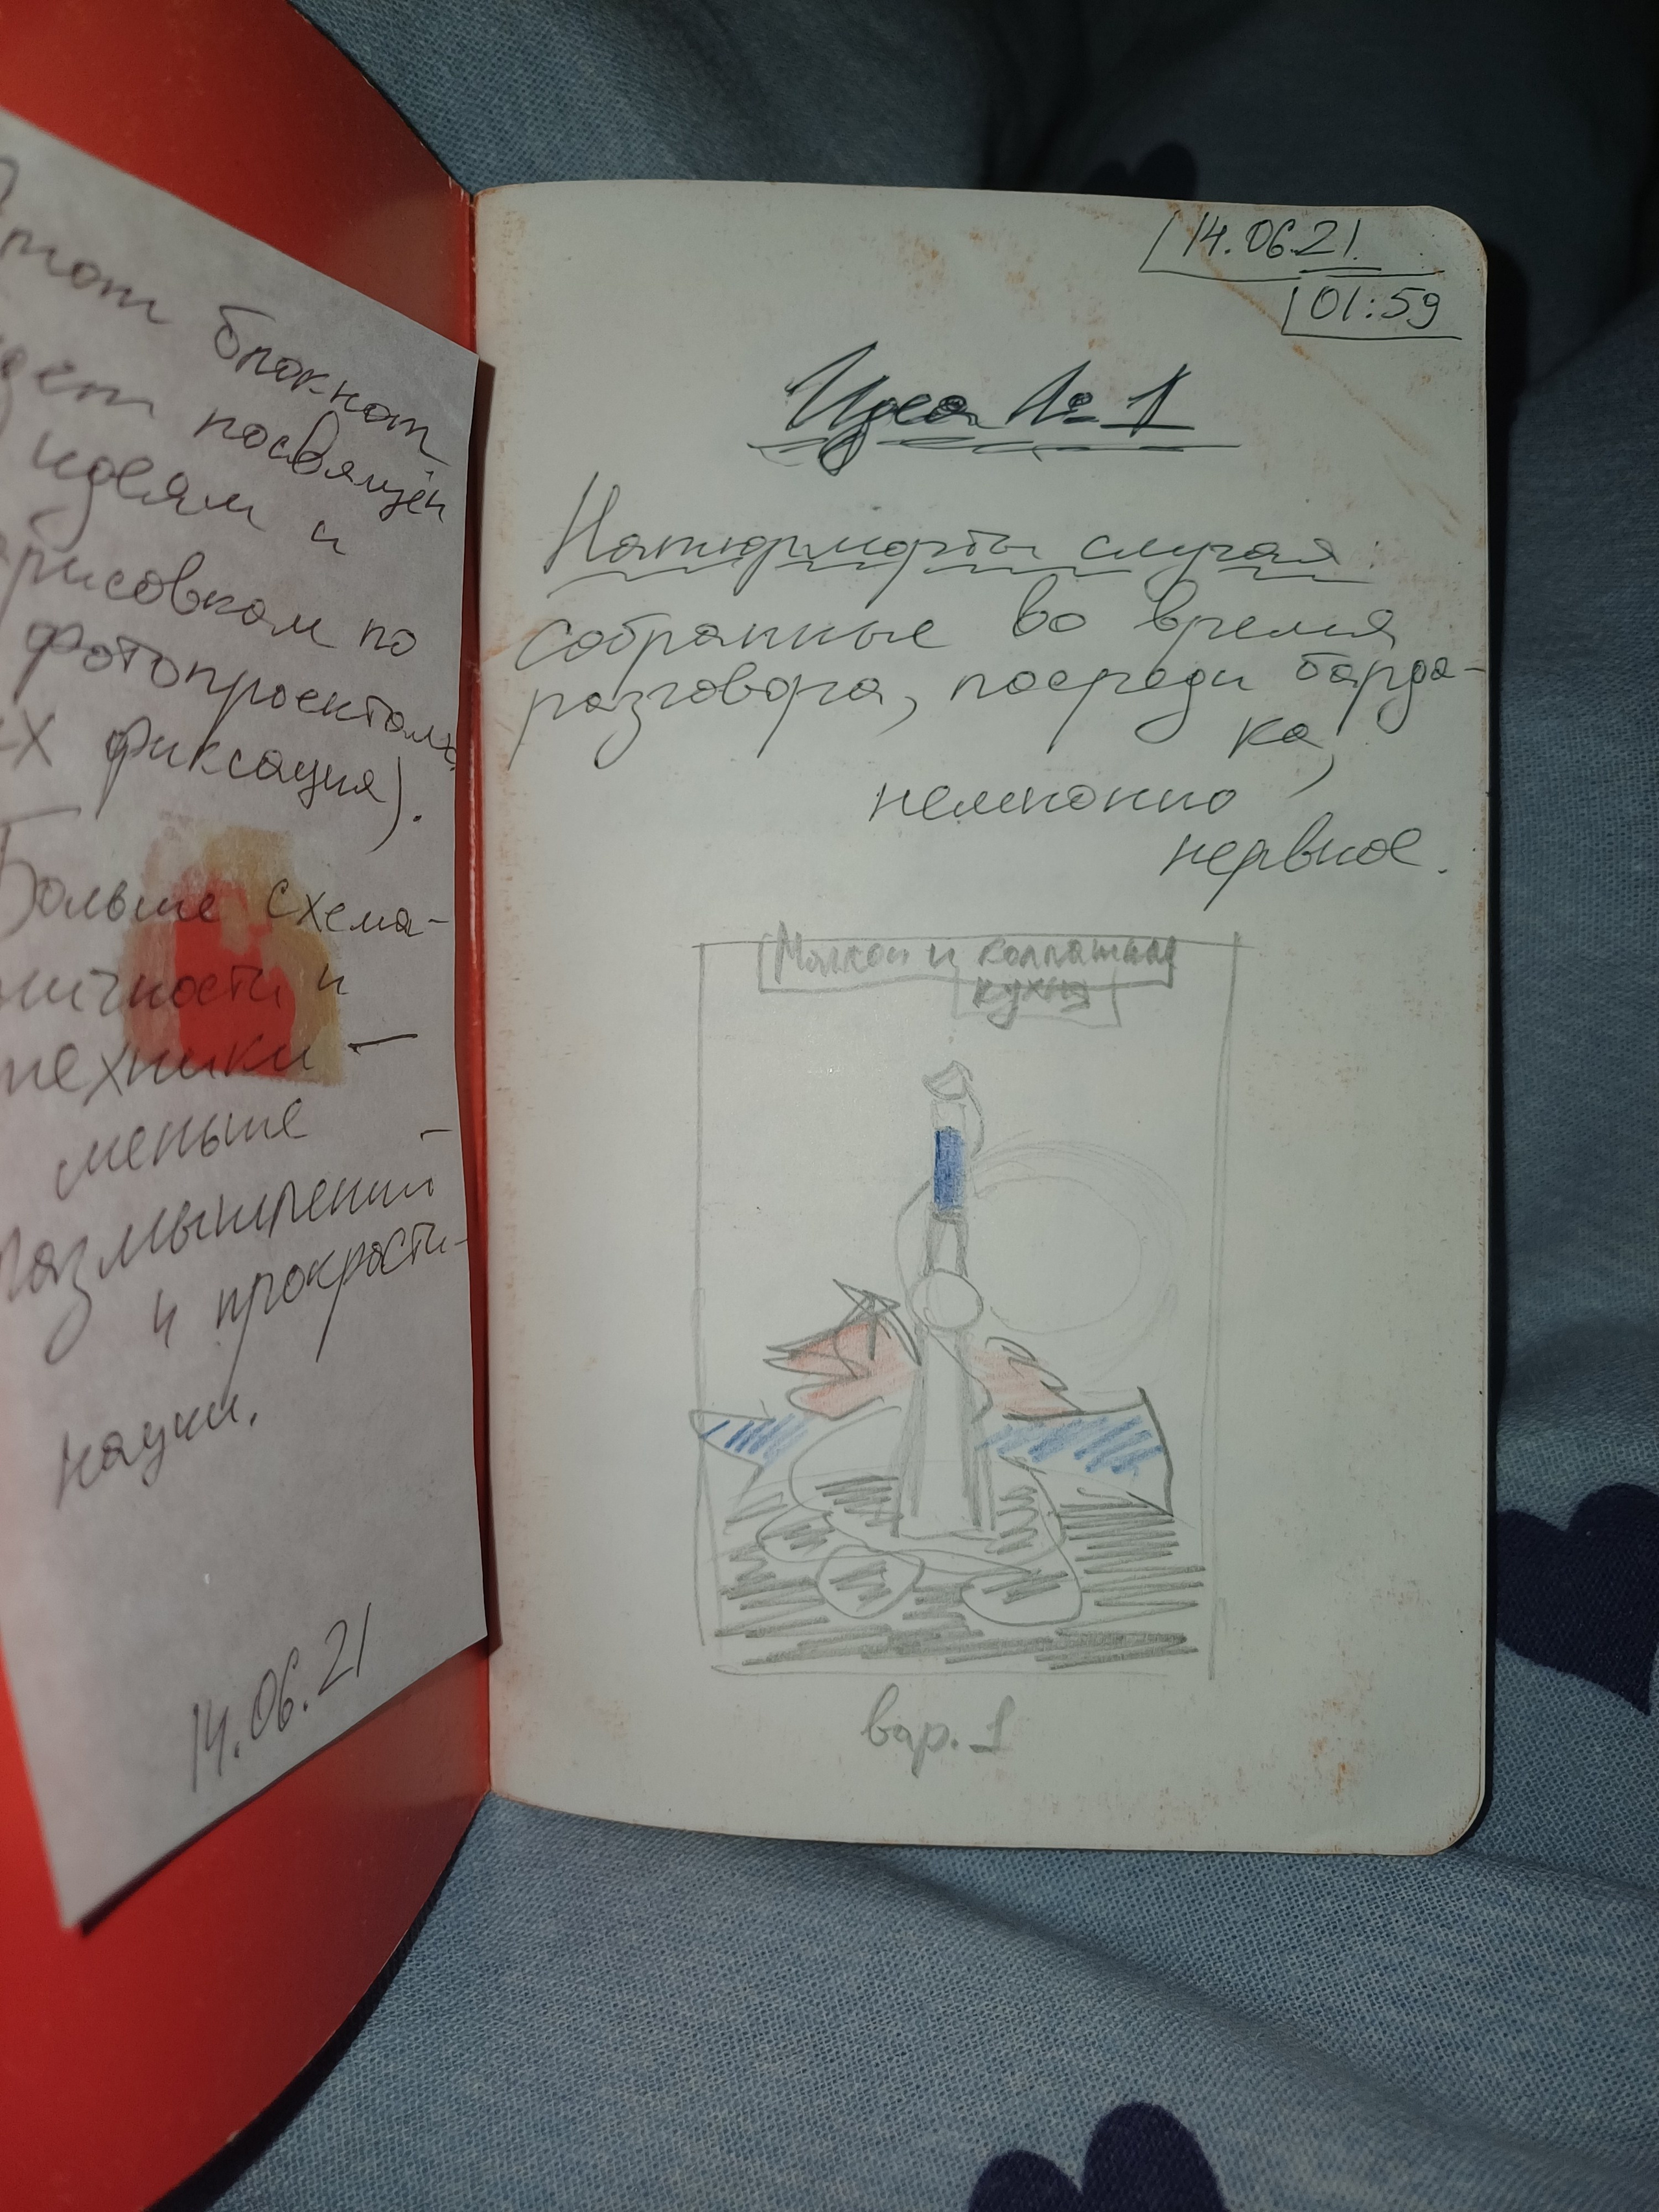 блокнот
посвящён
идеям и
по
фотопроектам
их фиксация).
Больше схема-
тичности и
техники —
меньше -
размышлений
и прокрасти-
нации.
14.06.21
14.06.21.
01:59
Идея № 1
Натюрморты случая:
собранные во время
разговора, посреди барда-
ка,
немножко
нервное.
и
кухня
вар. 1